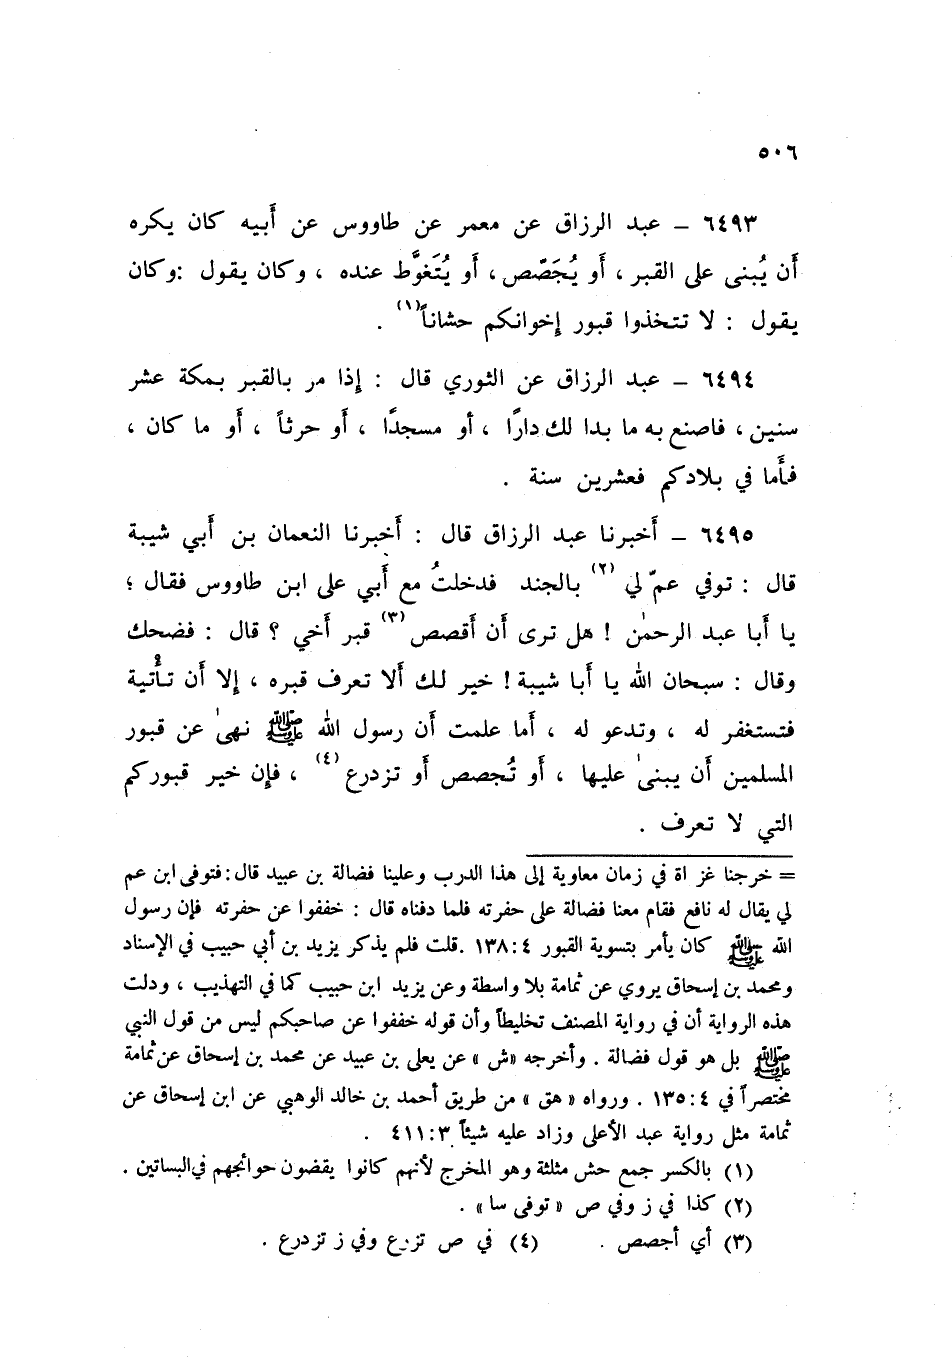 ٥٠٦
٦٤٩٣ – عبد الرزاق عن معمر عن طاووس عن أَبيه كان يكره
أَن يُبنى على القبر ، أَو يُجَصَّص ، أَو يُتَغوَّط عنده ، وكان يقول :وكان
يقول : لا تتخذوا قبور إخوانكم حشاناً(١) .
٦٤٩٤ – عبد الرزاق عن الثوري قال : إذا مر بالقبر بمكة عشر
سنين ، فاصنع به ما بدا لك دارًا ، أو مسجدًا ، أَو حرثاً ، أَو ما كان ،
فأَما في بلادكم فعشرين سنة .
٦٤٩٥ – أَخبرنا عبد الرزاق قال : أَخبرنا النعمان بن أَبي شيبة
قال : توفي عمّ لي (٢) بالجند فدخلتُ مع أَبي على ابن طاووس فقال ؛
يا أَبا عبد الرحمٰن ! هل ترى أن أَقصص(٣) قبر أَخي ؟ قال : فضحك
وقال : سبحان الله يا أَبا شيبة ! خير لك أَلا تعرف قبره ، إلا أَن تأْتية
فتستغفر له ، وتدعو له ، أَما علمت أَن رسول الله ﷺ نهىٰ عن قبور
المسلمين أَن يبنىٰ عليها ، أَو تُجصص أَو تزدرع(٤) ، فإن خير قبوركم
التي لا تعرف .
= خرجنا غز اة في زمان معاوية إلى هذا الدرب وعلينا فضالة بن عبيد قال : فتوفى ابن عم
لي يقال له نافع فقام معنا فضالة على حفرته فلما دفناه قال : خففوا عن حفرته فإن رسول
الله ﷺ كان يأمر بتسوية القبور ٤ : ١٣٨ .قلت فلم يذكر يزيد بن أبي حبيب في الإسناد
ومحمد بن إسحاق يروي عن ثمامة بلا واسطة وعن يزيد ابن حبيب كما في التهذيب ، ودلت
هذه الرواية أن في رواية المصنف تخليطاً وأن قوله خففوا عن صاحبكم ليس من قول النبي
ﷺ بل هو قول فضالة . وأخرجه «ش» عن يعلى بن عبيد عن محمد بن إسحاق عن ثمامة
مختصراً في ٤ : ١٣٥ . ورواه « هق » من طريق أحمد بن خالد الوهبي عن ابن إسحاق عن
ثمامة مثل رواية عبد الأعلى وزاد عليه شيئاً ٣ : ٤١١ .
(١) بالكسر جمع حش مثلثة وهو المخرج لأنهم كانوا يقضون حوائجهم في البساتين .
(٢) كذا في ز وفي ص « توفى سا » .
(٣) أي أجصص . (٤) في ص تزرع وفي ز تزدرع .